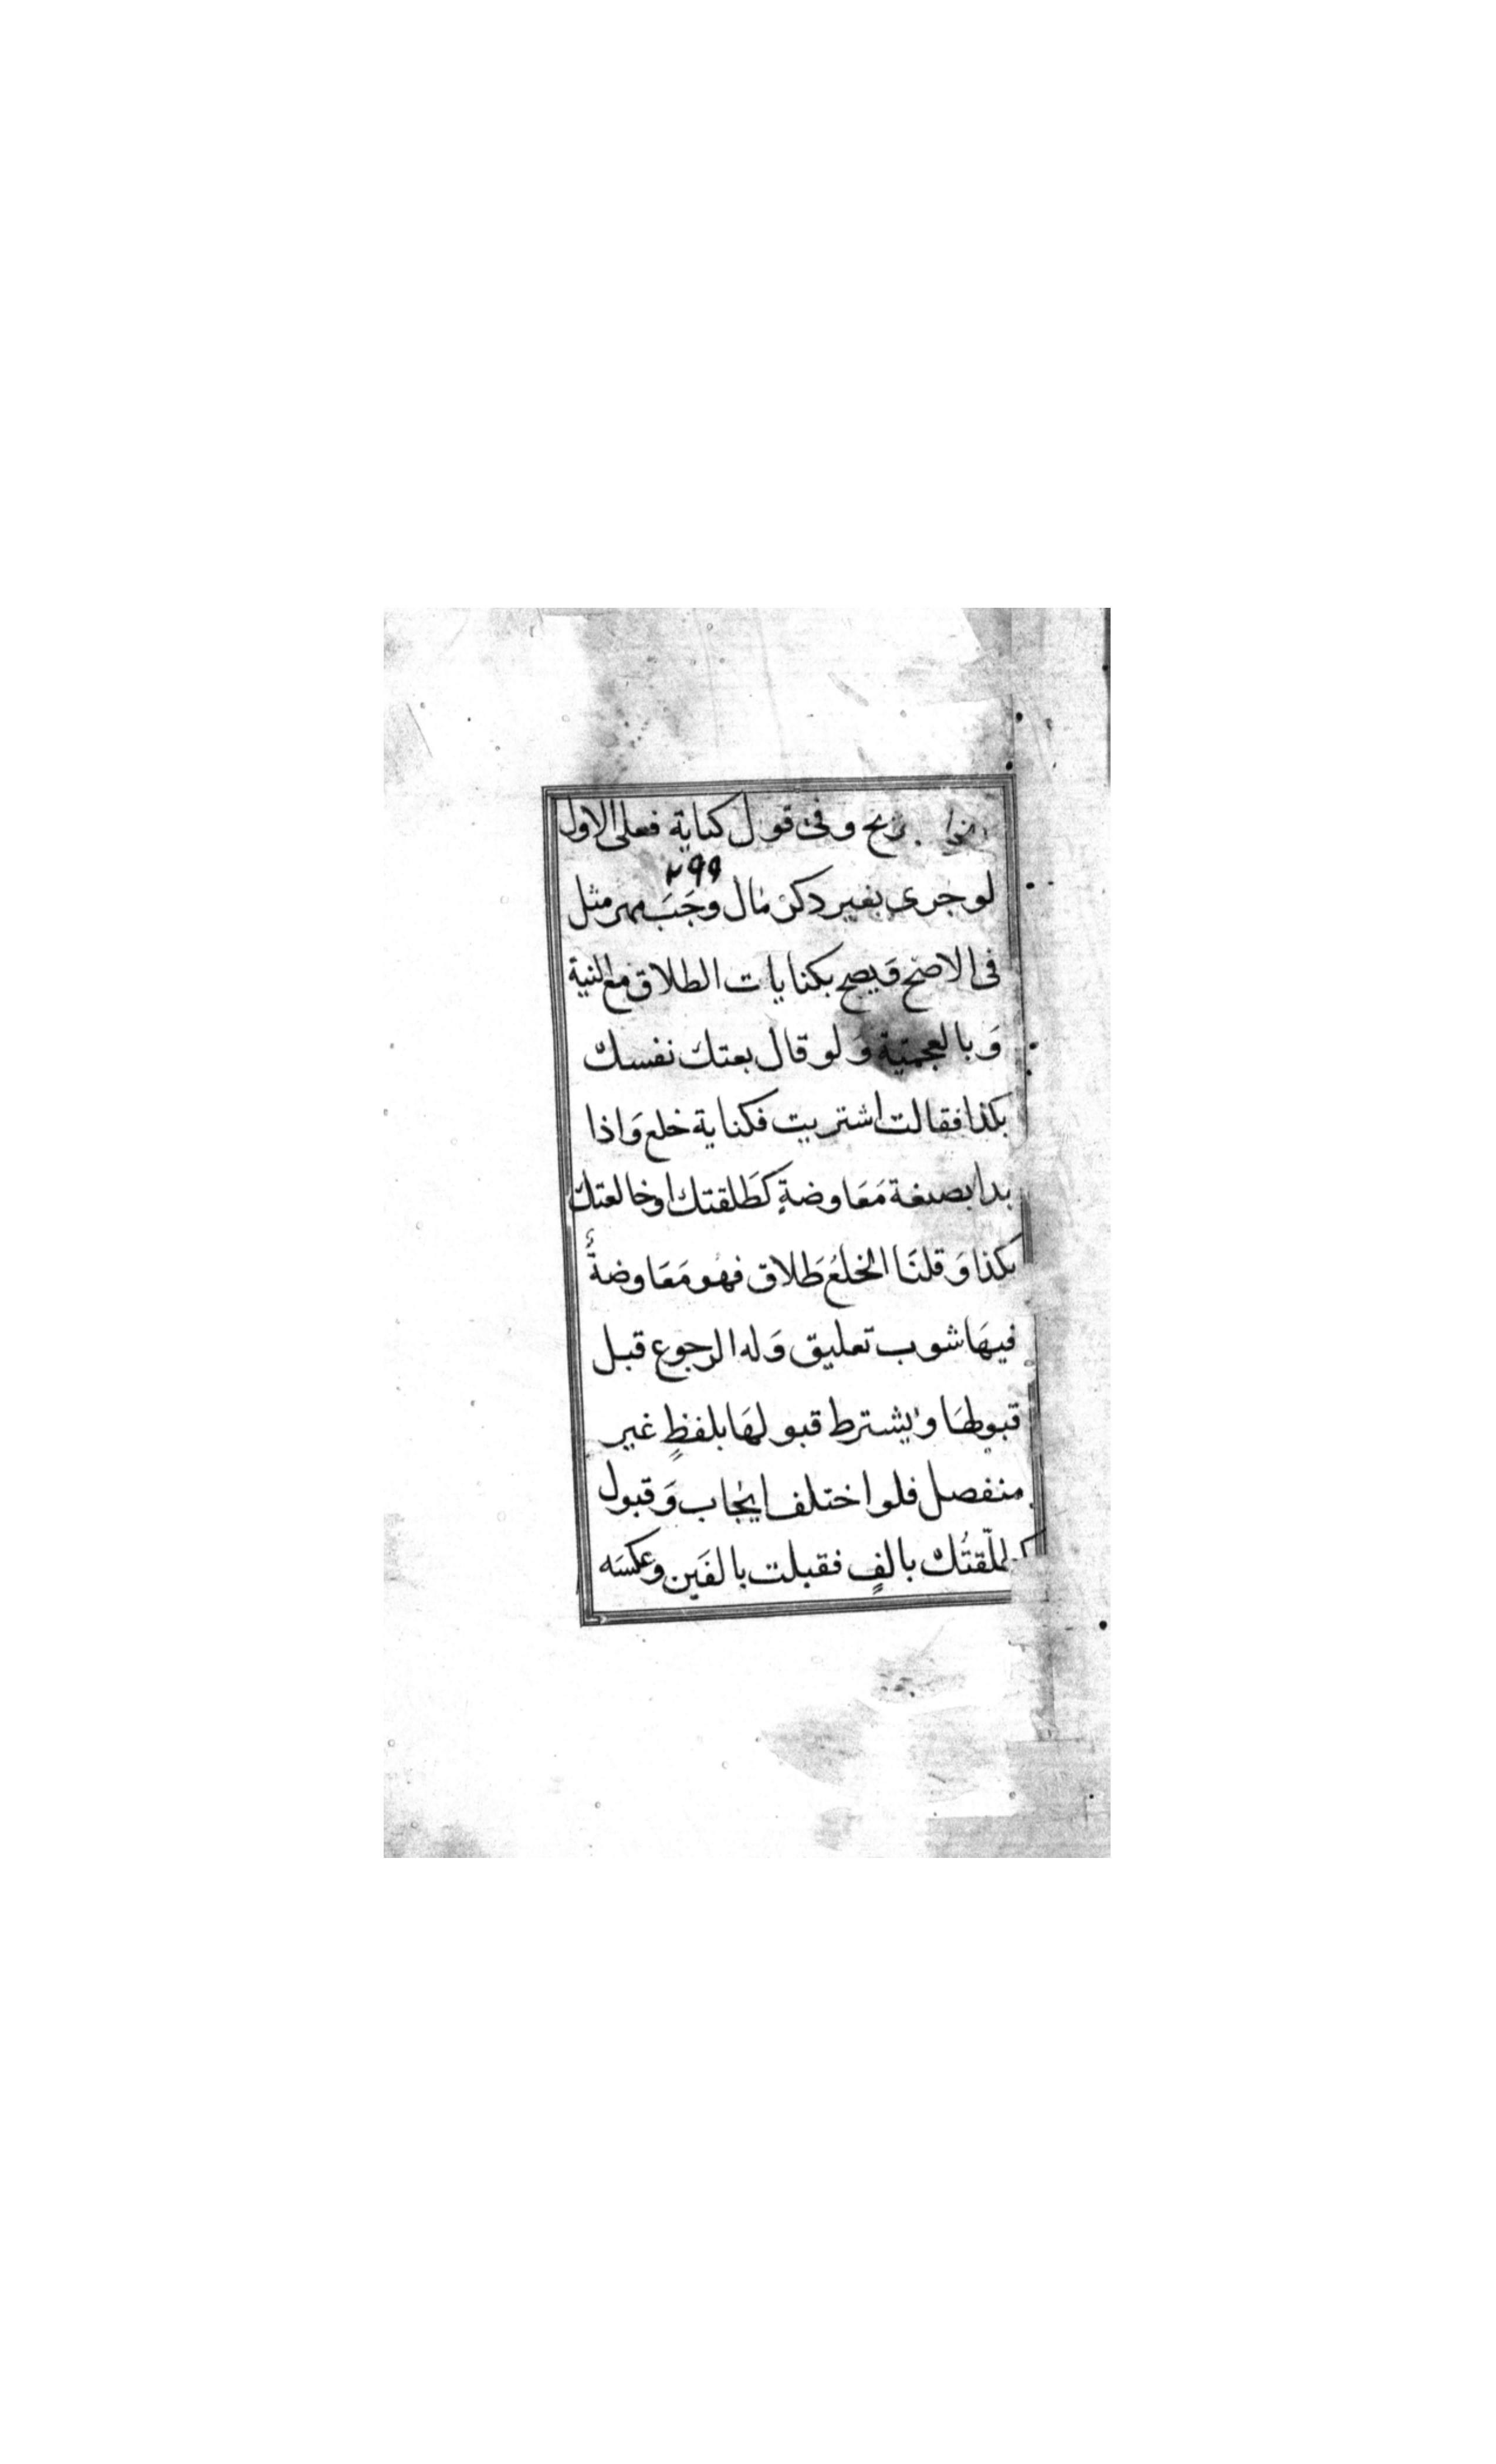 وفى قول كناية فعلى الاول
٢٩٩
لو جرى بغير ذكر مال وجَبَ مهر مثل
فى الاصح وَيصح بكنايات الطلاق مع النية
وَبالعجمية وَلو قال بعتك نفسك
بكذا فقالت اشتريت فكناية خلع وَاذا
بدا بصيغة مَعَاوضةٍ كَطَلقتك اوخالعتك
بكذا وَقلنَا الخلعُ طَلاق فهو مَعَاوضةٌ
فيهَا شوب تعليق وَله الرجوع قبل
قبولهَا ويشترط قبولهَا بلفظٍ غير
منفصل فلو اختلف ايجاب وَقبول
كطلّقتُك بالفٍ فقبلت بالفَين وعكسَه